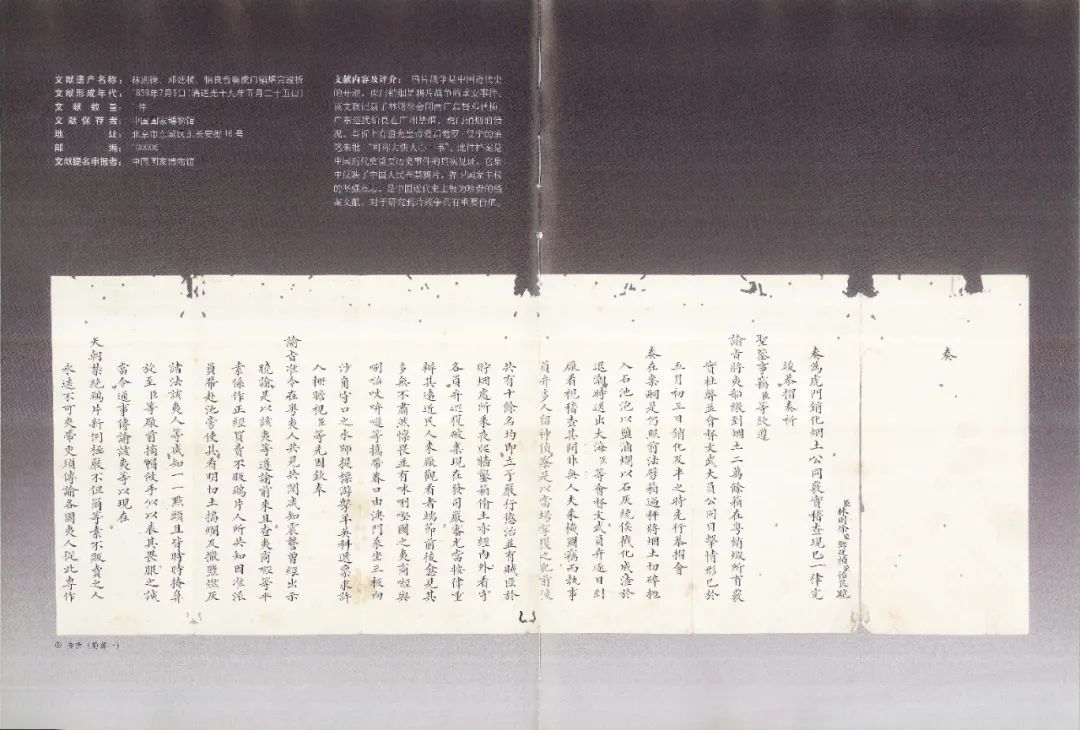 文献遗产名称： 林则徐、邓廷桢、怡良合奏虎门销烟完竣折
文献形成年代： 1839年7月5日（清道光十九年五月二十五日）
文献数量： 1件
文献保存者： 中国国家博物馆
地址： 北京市东城区东长安街16号
邮编： 100006
文献提名申报者： 中国国家博物馆
文献内容及评介： 鸦片战争是中国近代史
的开端，虎门销烟是鸦片战争的重要事件。
该文献记载了林则徐会同两广总督邓廷桢、
广东巡抚怡良在广州禁烟、虎门销烟的情
况。奏折上有道光皇帝爱新觉罗·旻宁的亲
笔朱批“可称大快人心一事”。此件档案是
中国近代史重要历史事件的真实见证，它集
中反映了中国人民查禁鸦片，捍卫国家主权
的坚强意志，是中国近代史上极为珍贵的档
案文献，对于研究鸦片战争具有重要价值。
奏
臣林则徐 臣邓廷桢 臣怡良跪
奏为虎门销化烟土公同严实稽查现已一律完
竣恭摺奏祈
聖鉴事窃臣等钦遵
諭旨将夷船缴到烟土二萬餘箱在粤销燬所有裝
窖杜弊並會督文武大員公同目擊情形已於
五月初三日銷化及半之時先行恭摺會
奏在案嗣是仍照前法劈箱過秤將烟土切碎抛
入石池泡以鹽滷爛以石灰統俟戳化成渣於
退潮時送出大海臣等會督文武員弁逐日到
廠看視稽查其間非無人夫乘機圖竊而執事
員弁多人留神偵察是以當場拏獲之犯前後
共有十餘名均即立予嚴行懲治並有賊匪於
貯烟處所乘夜爬牆鑿箱偷土亦經內外看守
各員弁巡獲破案現在發司嚴審尤當按律重
辦其遠近民人來廠觀看者端節前後愈見其
多無不肅然懍畏並有咪唎堅國之夷商經與
唎咕吥吽嘣等攜帶眷口由澳門乘坐三板向
沙角守口之水師提標游擊羊英科遞禀求許
入柵瞻視臣等先因欽奉
諭旨准令在粤夷人共見共聞咸知震讋曾經出示
曉諭是以該夷等遵諭前來且查夷商經等平
素係作正經買賣不販鴉片人所共知因准派
員帶赴池旁使其看明切土搗爛及撒鹽燃灰
諸法該夷人等咸知一一點頭且皆時時掩鼻
旋至臣等廠前摘帽斂手似以表其畏服之誠
當令通事傳諭該夷等以現在
天朝禁絕鴉片新例極嚴不但爾等素不販賣之人
永遠不可夾帶更須傳諭各國夷人從此專作
① 奏折（局部一）